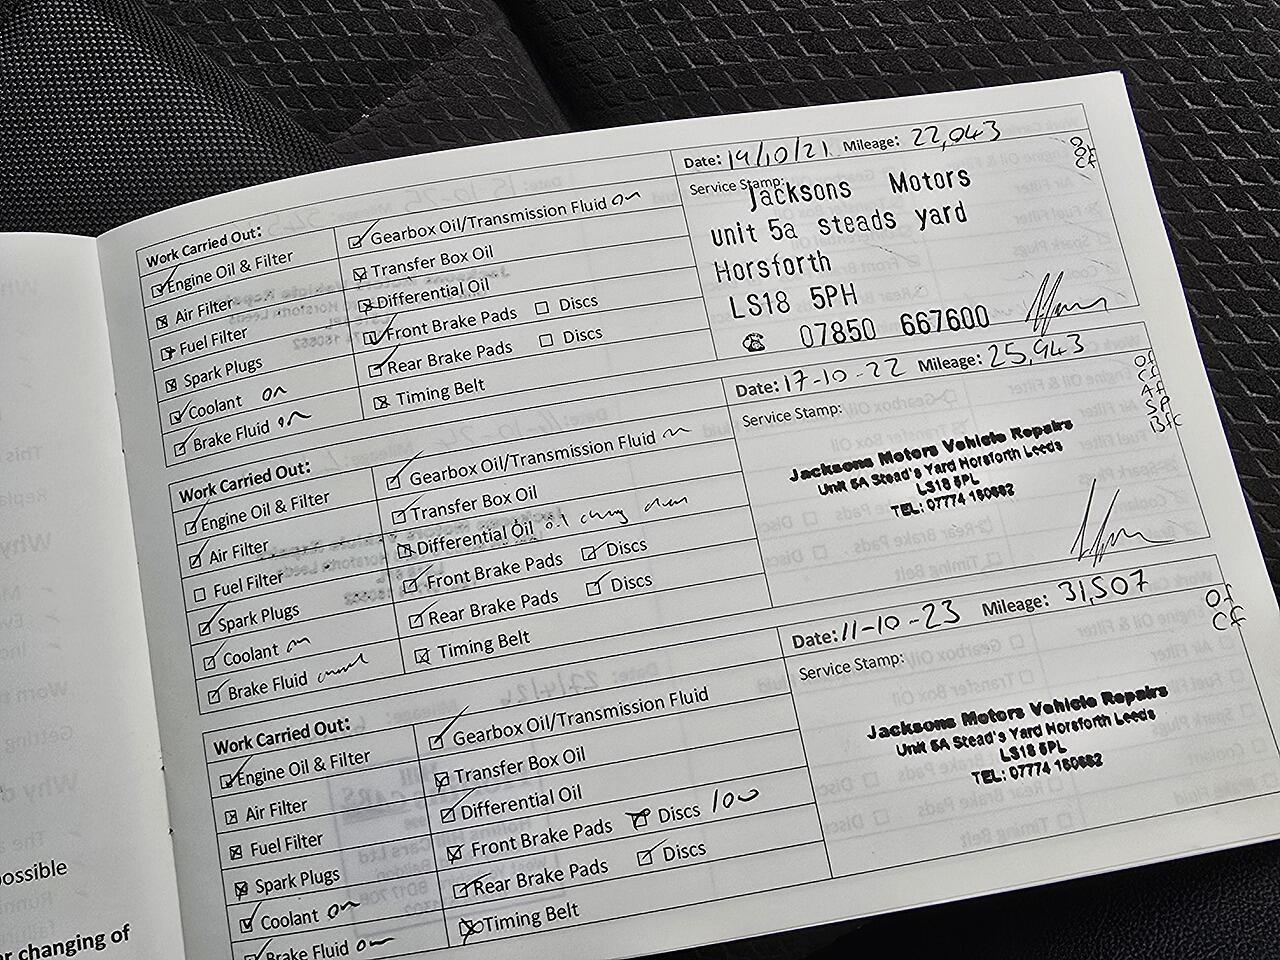 Date: 19/10/21 Mileage: 22,043
Work Carried Out:
Engine Oil & Filter
Air Filter
Fuel Filter
Spark Plugs
Coolant
Brake Fluid
Gearbox Oil/Transmission Fluid
Transfer Box Oil
Differential Oil
Front Brake Pads Discs
Rear Brake Pads Discs
Timing Belt
Service Stamp:
Jacksons Motors
unit 5a steads yard
Horsforth
LS18 5PH
☎ 07850 667600
OF
CF
Date: 17-10-22 Mileage: 25,943
Work Carried Out:
Engine Oil & Filter
Air Filter
Fuel Filter
Spark Plugs
Coolant
Brake Fluid
Gearbox Oil/Transmission Fluid
Transfer Box Oil
Differential Oil
Front Brake Pads Discs
Rear Brake Pads Discs
Timing Belt
Service Stamp:
Jacksons Motors Vehicle Repairs
Unit 5A Stead's Yard Horsforth Leeds
LS18 5PL
TEL: 07774 160662
OF
CF
AF
SP
Date: 11-10-23 Mileage: 31,507
Work Carried Out:
Engine Oil & Filter
Air Filter
Fuel Filter
Spark Plugs
Coolant
Brake Fluid
Gearbox Oil/Transmission Fluid
Transfer Box Oil
Differential Oil
Front Brake Pads Discs
Rear Brake Pads Discs
Timing Belt
Service Stamp:
Jacksons Motors Vehicle Repairs
Unit 5A Stead's Yard Horsforth Leeds
LS18 5PL
TEL: 07774 160662
OF
CF
ossible
changing of